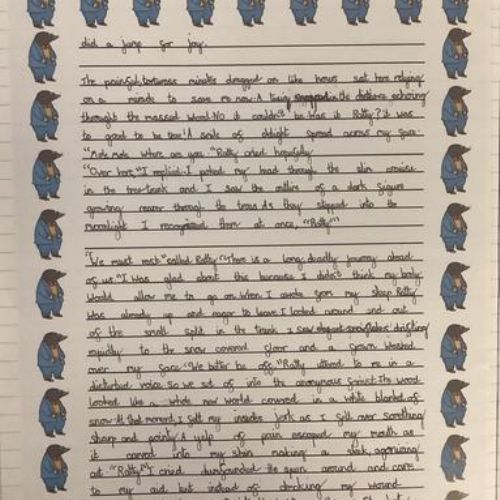 did a jump for joy.
The painful, torturous minutes dragged on like hours sat here relying
on a miracle to save me now. A twig snapped in the distance echoring
throught the mossed wood. No it couldn't be. Was it Ratty? it was
to good to be true! A smile of delight spread across my face.
"Mole Mole where are you" Ratty cried hopefully
"Over here" I replied. I poked my head through the slim crevise
in the tree trunk and I saw the outline of a dark figure
growing nearer through the trees. As they stepped into the
moonlight I recognised them at once, "Ratty"
"We must rest" called Ratty "There is a long, deadly journey ahead
of us." I Was glad about this because I didn't think my body
Would allow me to go on. When I awoke from my sleep Ratty
Was already up and eager to leave. I looked around and out
of the small split in the trunk I saw elegant snowflakes drifting
rapidly to the snow covered floor and a frown washed
over my face. "We better be off" Ratty uttered to me in a
disturbed voice so we set of into the anonymous forest. The wood
looked like a whole new world covered in a white blanket of
snow. At that moment, I felt my insides jerk as I fell over something
sharp and pointy. A yelp of pain escaped my mouth as
it carved into my shin making a agonising
cut. "Ratty" I cried dumfounded. He span around and came
to my aid but instead of my wound